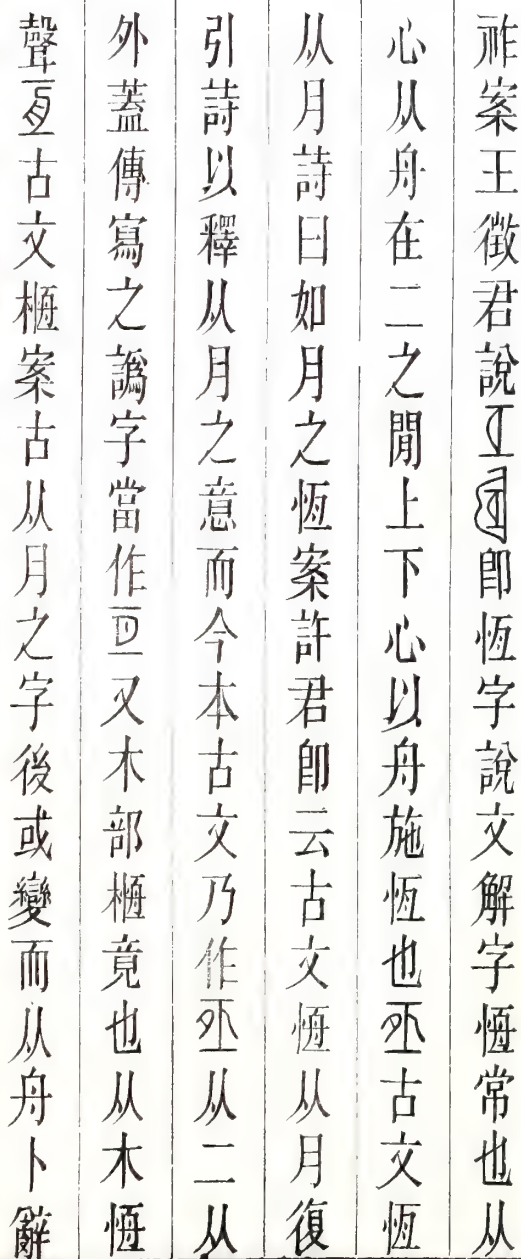 祚案王徵君說卽恆字說文解字恆常也从
心从舟在二之閒上下心以舟施恆也𠄨古文恆
从月詩曰如月之恆案許君卽云古文恆从月復
引詩以釋从月之意而今本古文乃作𠄨从二从
外蓋傳寫之譌字當作又木部㮓竟也从木恆
聲亙古文㮓案古从月之字後或變而从舟卜辭